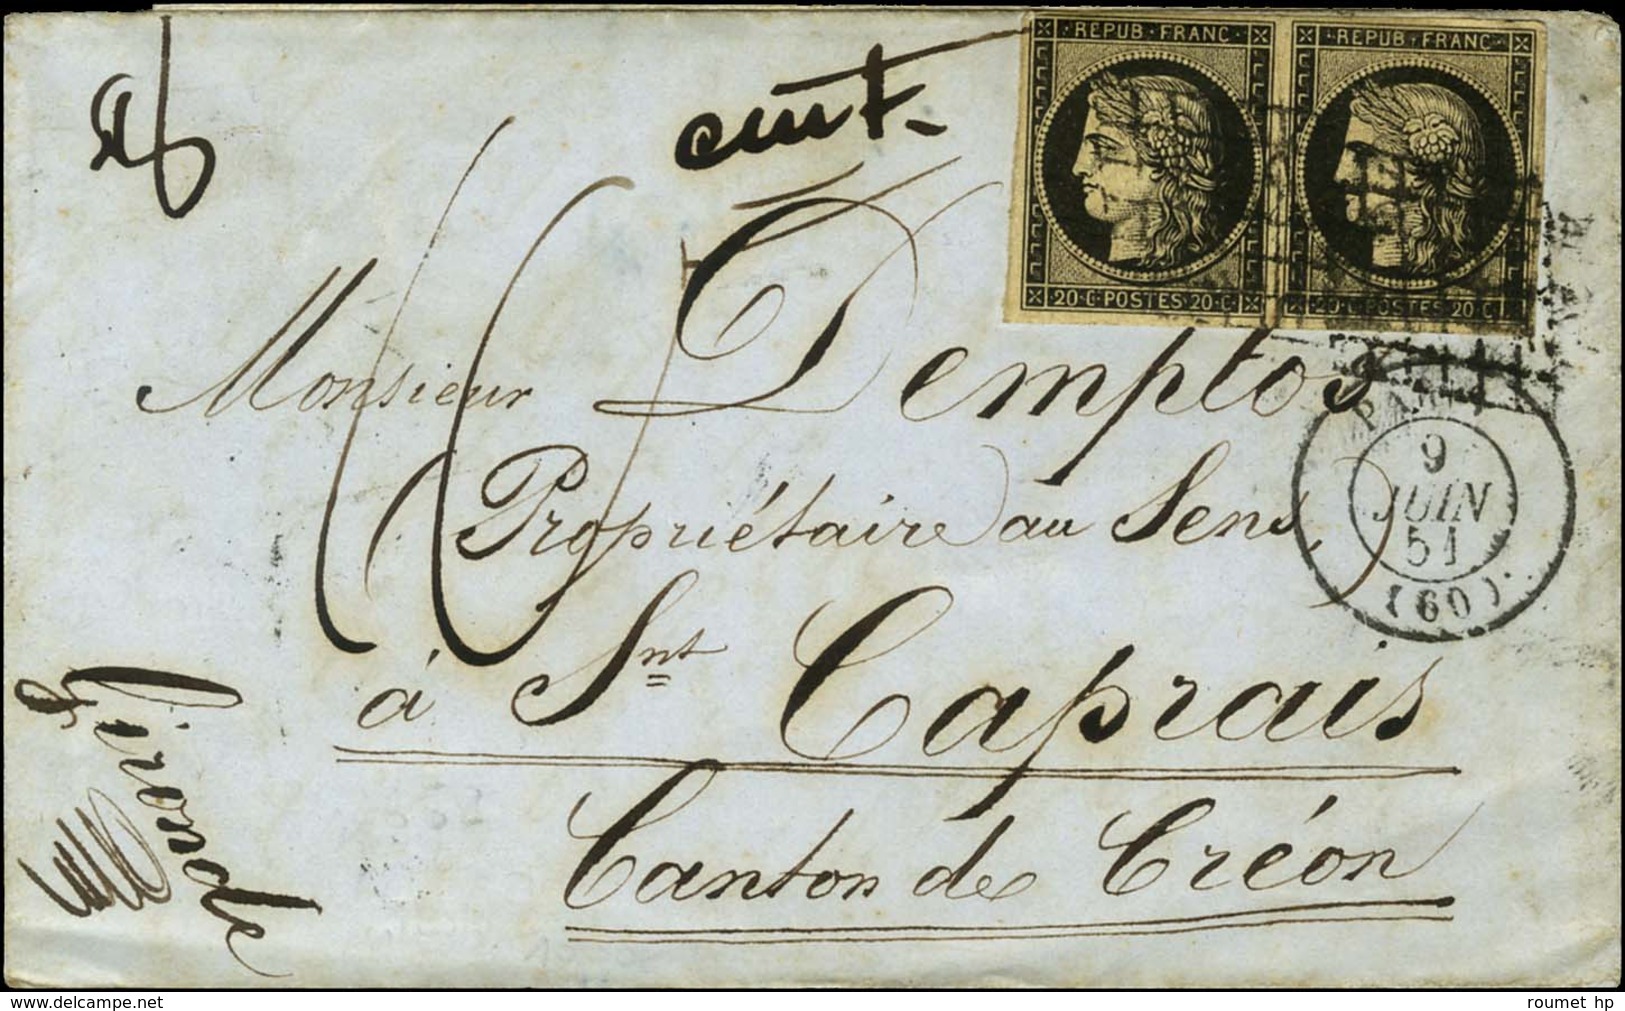 REPUB·FRANC·
·REPUB·FRANC·
20·C·POSTES·20·C·
20·C·POSTES·20·C·
Monsieur Demptos
Propriétaire au Sens,
à Snt Caprais
Canton de Créon
Gironde
PARIS
9
JUIN
51
(60)
www.delcampe.net
roumet hp